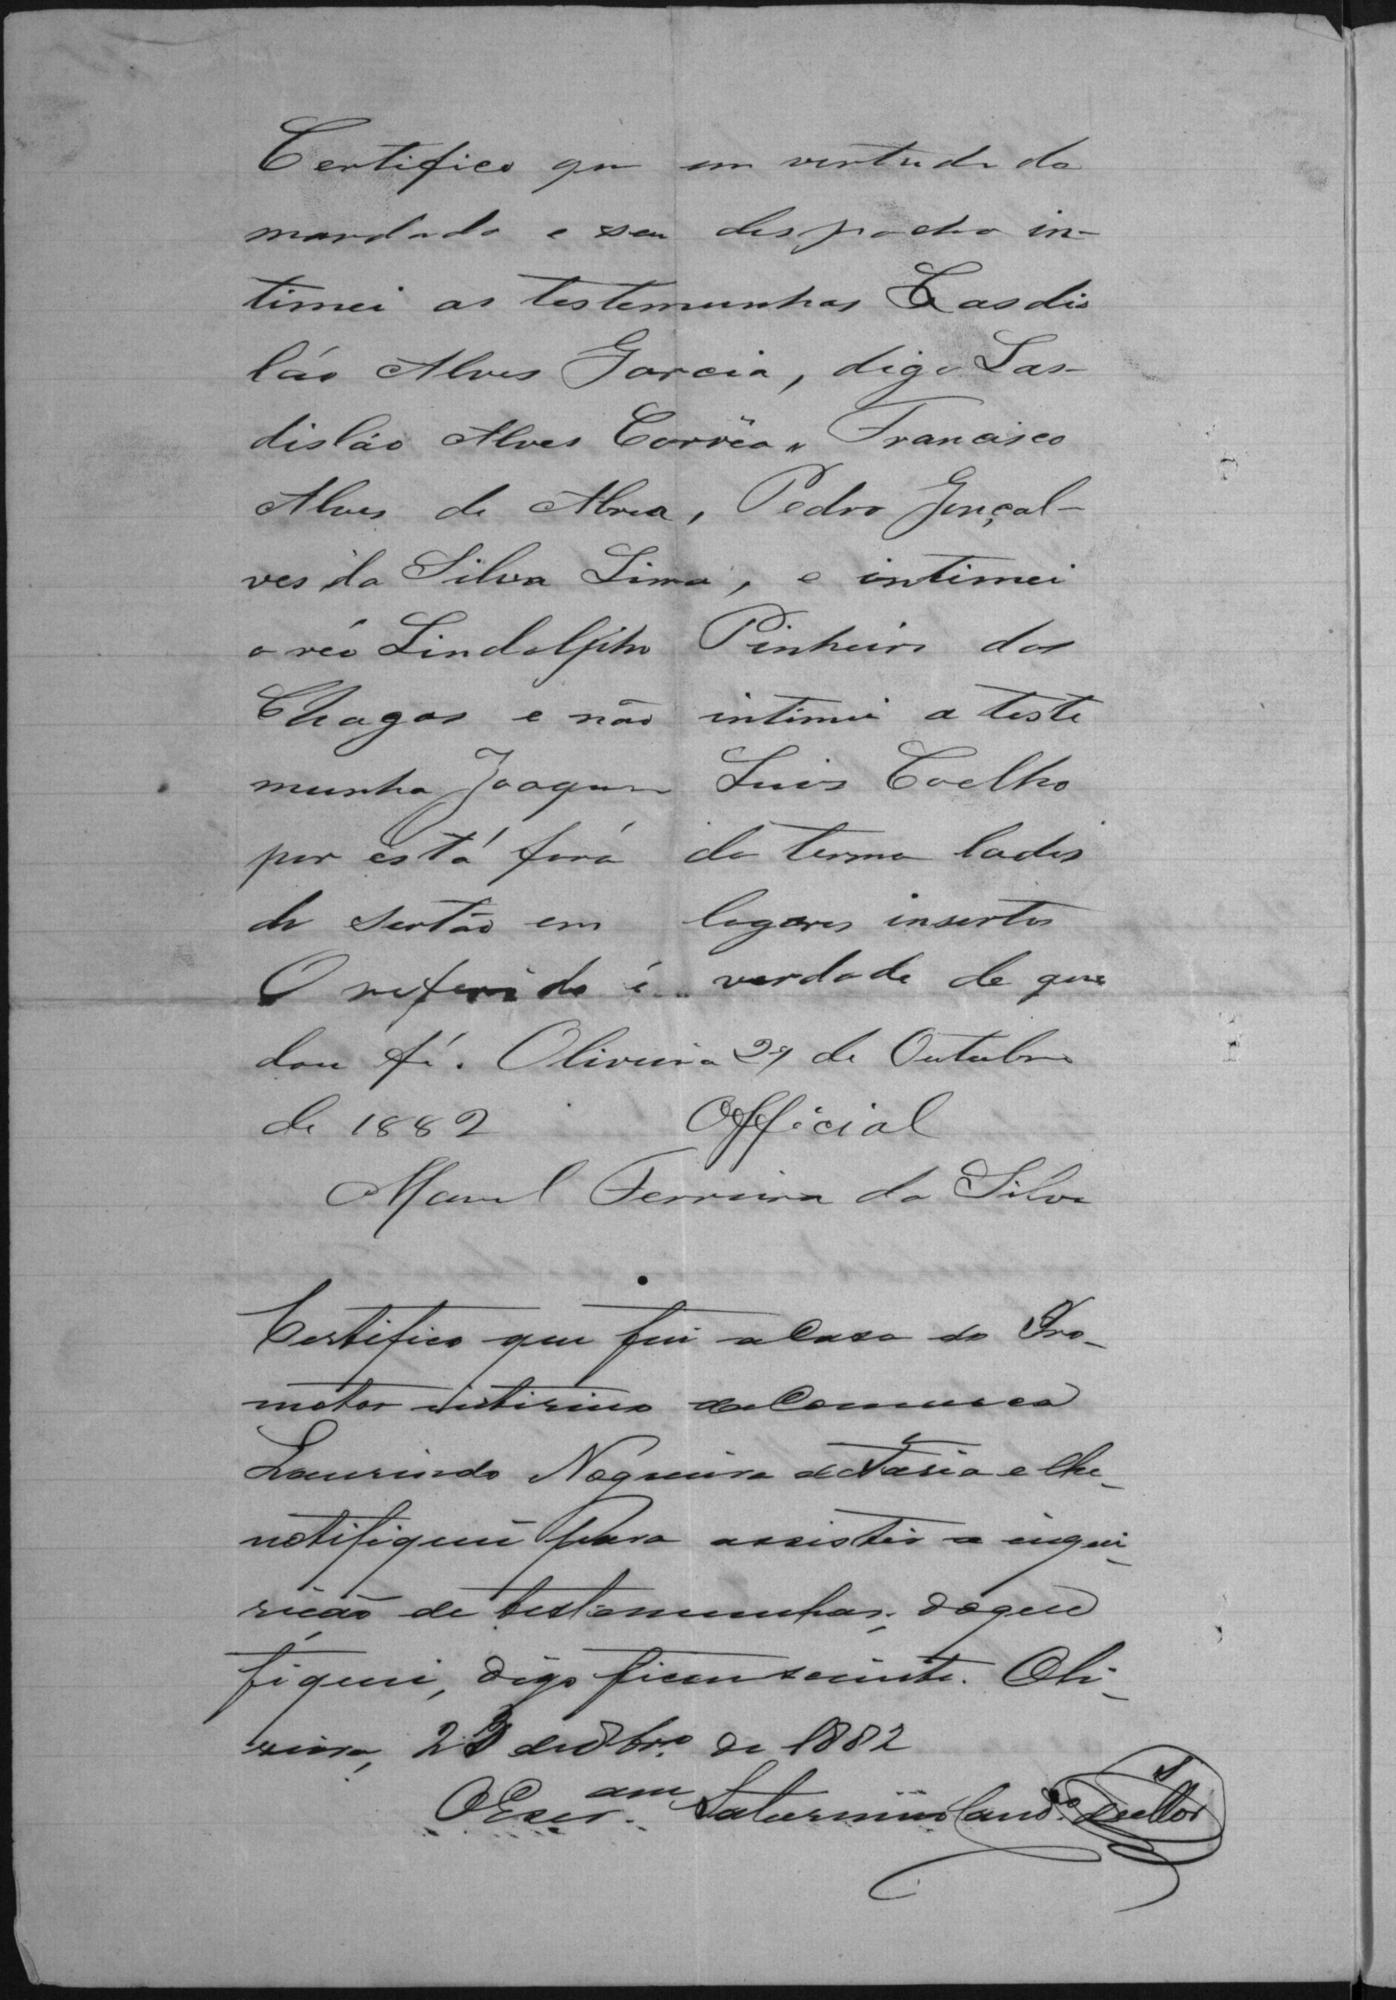 Certifico que em vertude do
mandado e seu despacho in-
timei as testemunhas Lasdis
láo Alves Garcia, digo Las-
disláo Alves Corrêa, Francisco
Alves de Abreu, Pedro Gonçal-
ves da Silva Lima, e intimei
o réo Lindolpho Pinheiro das
Chagas e não intimei a teste
munha Joaquim Luis Coelho
por está fora do termo lados
do sertão em logares insertos
O referido é verdade de que
dou fé. Oliveira 29 de Outubro
de 1882 Official
Manoel Ferreira da Silva
Certifico que fui a Casa do Pro-
motor intirino da Comarca
Laurindo Nogueira de Faria e lhe
notifiquei para assistir a inqui-
rição de testemunhas; do que
fiquei, digo ficou sciente. Oli-
veira, 23 de 8br.º de 1882
O Escr.am Saturnino Cand.º